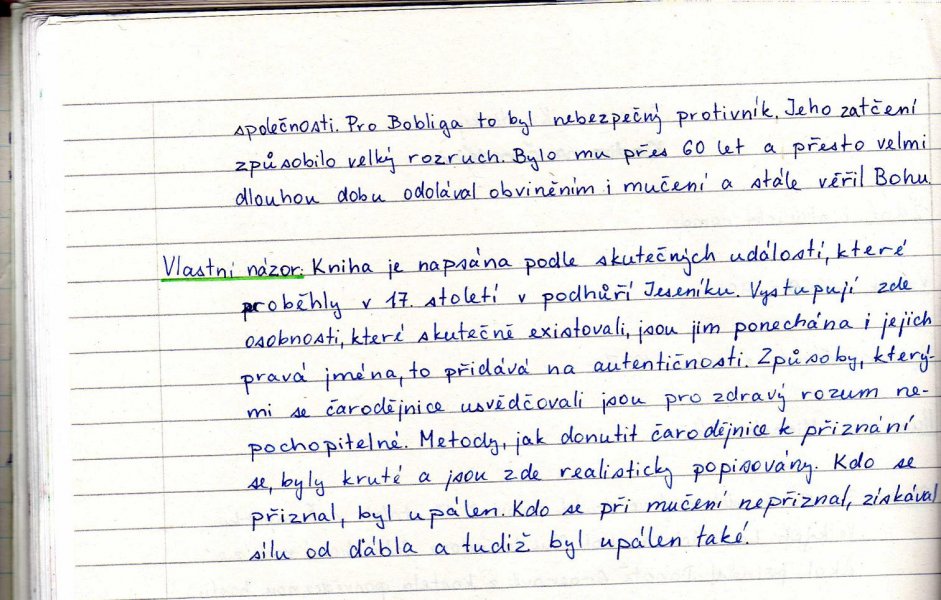 společnosti. Pro Bobliga to byl nebezpečný protivník. Jeho zatčení
způsobilo velký rozruch. Bylo mu přes 60 let a přesto velmi
dlouhou dobu odolával obviněním i mučení a stále věřil Bohu.
Vlastní názor: Kniha je napsána podle skutečných událostí, které
proběhly v 17. století v podhůří Jeseníku. Vystupují zde
osobnosti, které skutečně existovali, jsou jim ponechána i jejich
pravá jména, to přidává na autentičnosti. Způsoby, který-
mi se čarodějnice usvědčovali jsou pro zdravý rozum ne-
pochopitelné. Metody, jak donutit čarodějnice k přiznání
se, byly kruté a jsou zde realisticky popisovány. Kdo se
přiznal, byl upálen. Kdo se při mučení nepřiznal, získával
sílu od ďábla a tudiž byl upálen také.